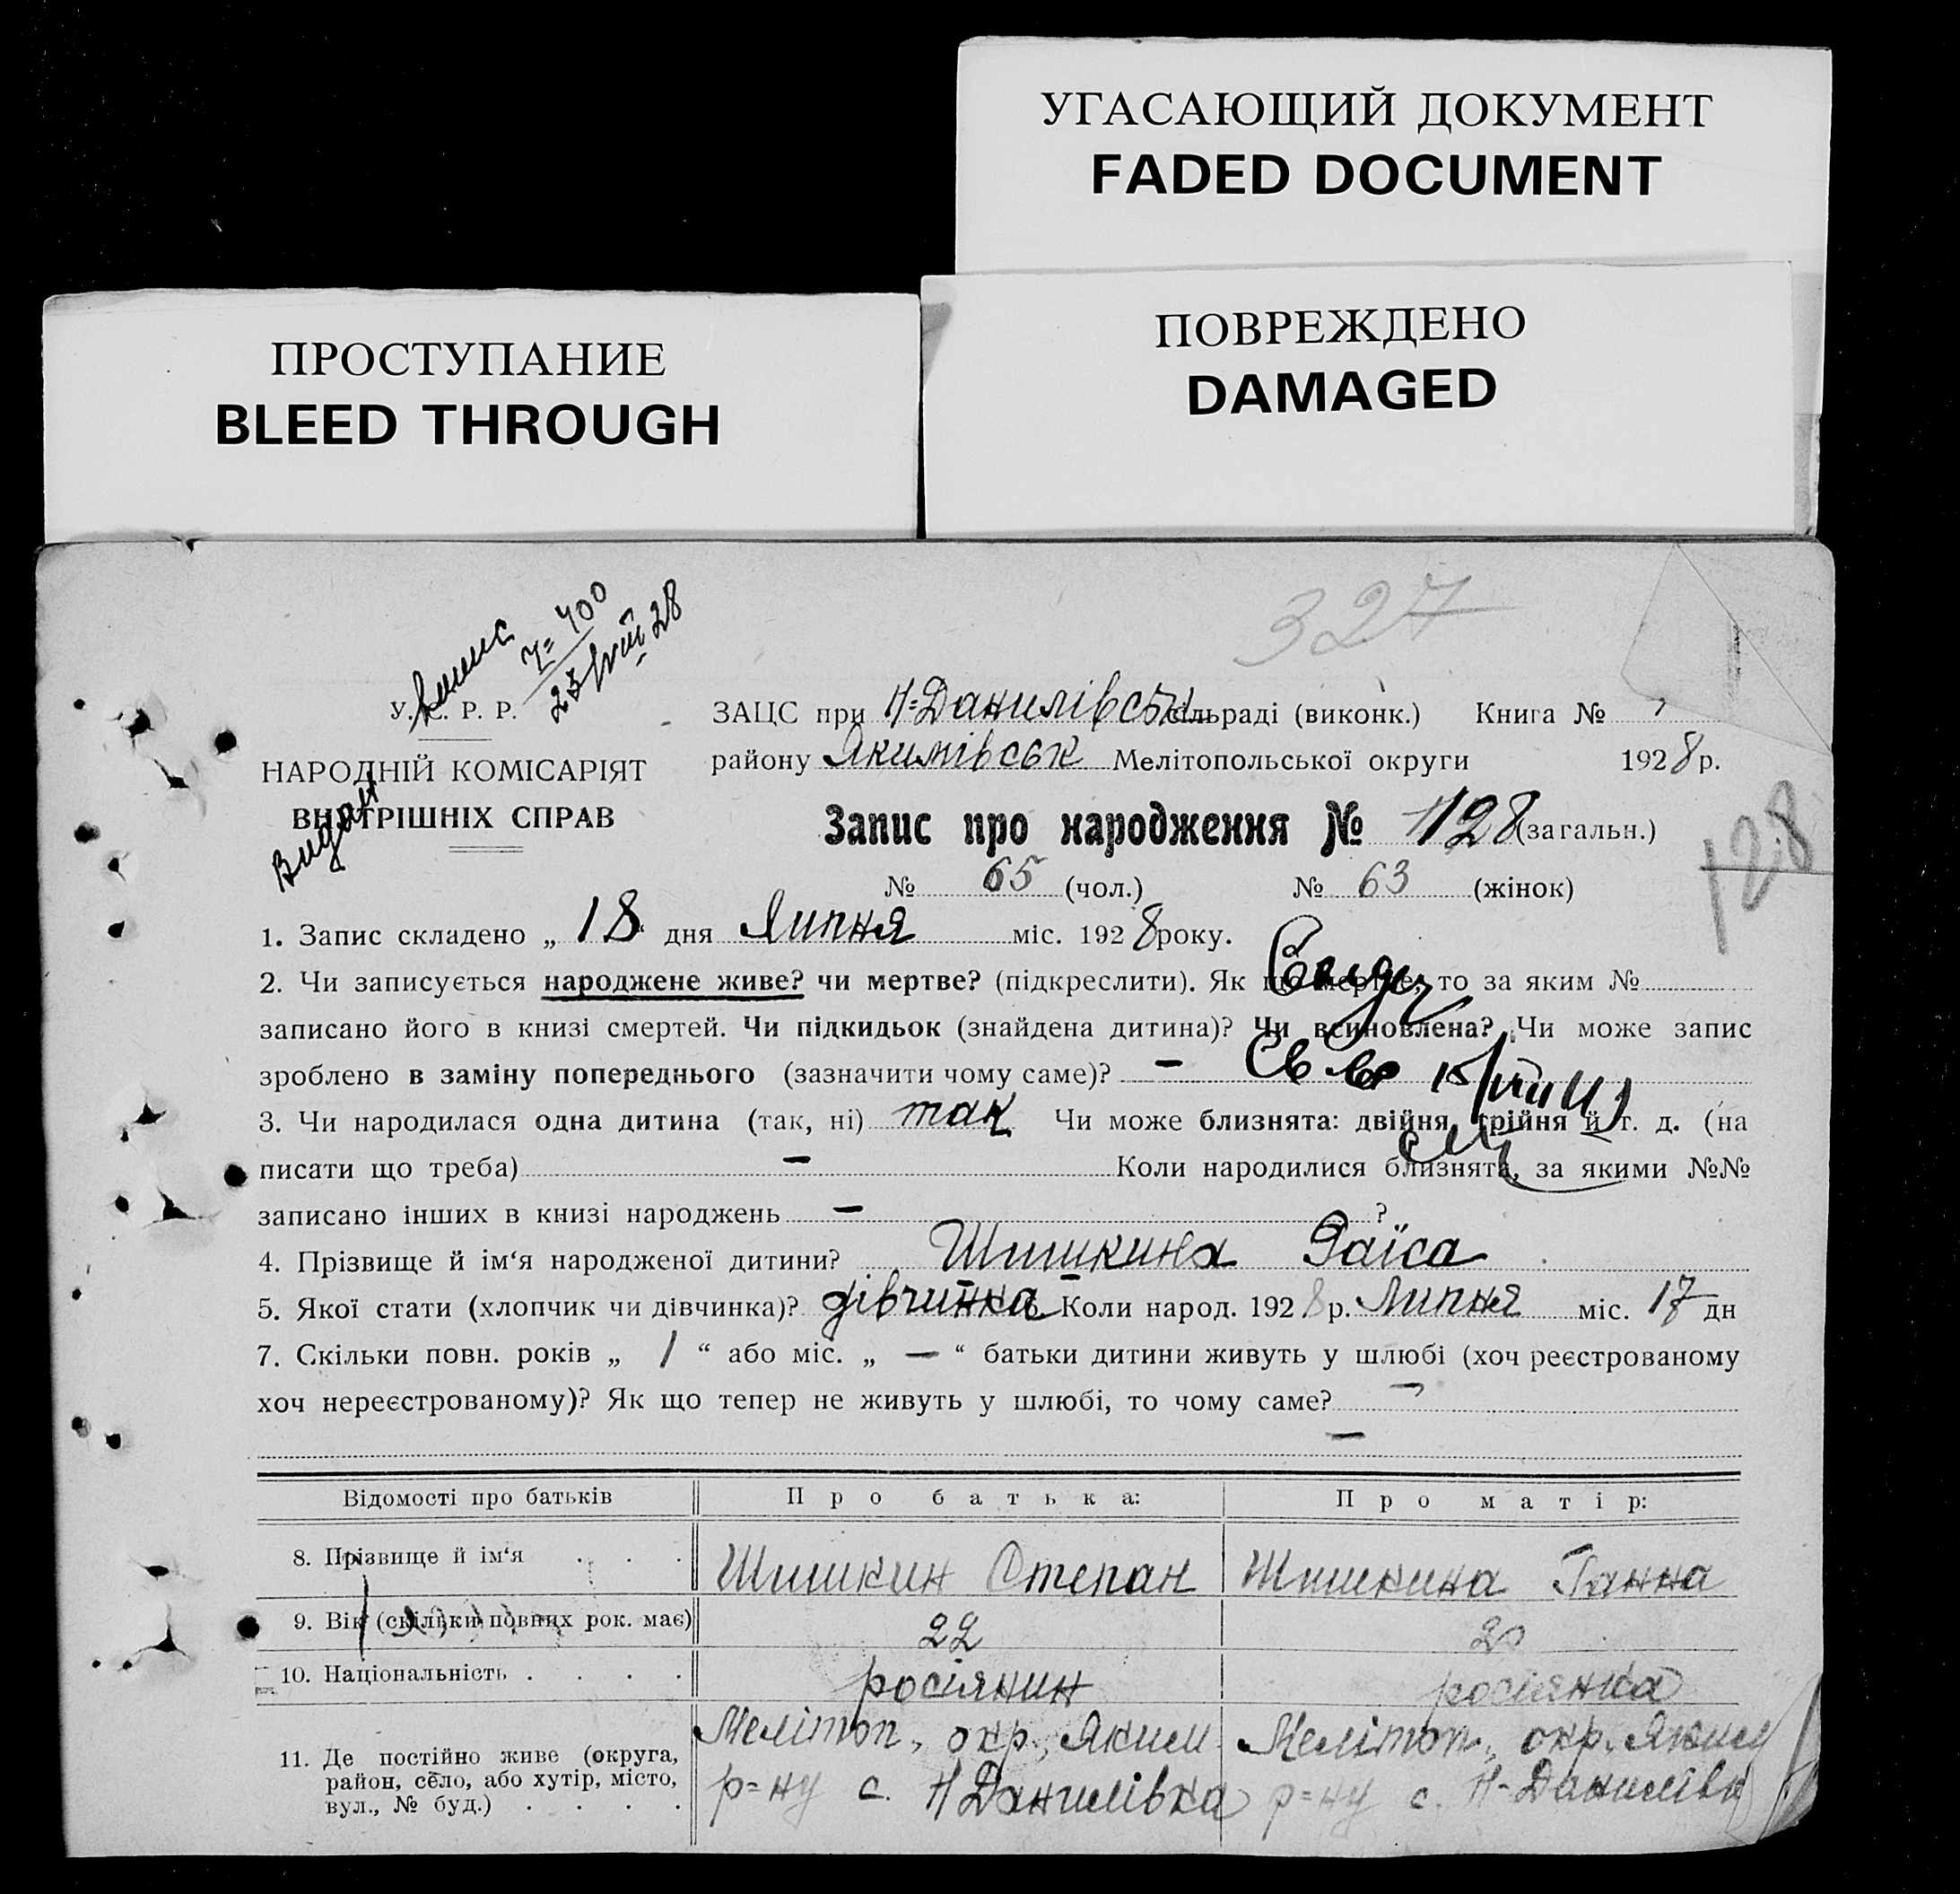 УГАСАЮЩИЙ ДОКУМЕНТ
FADED DOCUMENT
ПОВРЕЖДЕНО
DAMAGED
ПРОСТУПАНИЕ
BLEED THROUGH
327
7=400
23/VIII 28
У. С. Р. Р.
НАРОДНІЙ КОМІСАРІЯТ
ВНУТРІШНІХ СПРАВ
Видан
ЗАЦС при Н=Данилівськ сільраді (виконк.) Книга №
району Якимівськ Мелітопольської округи 1928 р.
Запис про народження № 128 (загальн.)
128
№ 65 (чол.) № 63 (жінок)
1. Запис складено „ 18 “ дня Липня міс. 1928 року.
2. Чи записується народжене живе? чи мертве? (підкреслити). Як що мертве, то за яким №
записано його в книзі смертей. Чи підкидьок (знайдена дитина)? Чи всиновлена? Чи може запис
зроблено в заміну попереднього (зазначити чому саме)? —
3. Чи народилася одна дитина (так, ні) так Чи може близнята: двійня, трійня й т. д. (на
писати що треба) — Коли народилися близнята, за якими №№
записано інших в книзі народжень — ?
4. Прізвище й ім‘я народженої дитини? Шишкина Раїса
5. Якої стати (хлопчик чи дівчинка)? дівчинка 6. Коли народ. 1928 р. Липня міс. 17 дн
7. Скільки повн. років „ 1 “ або міс. „ — “ батьки дитини живуть у шлюбі (хоч реєстрованому
хоч нереєстрованому)? Як що тепер не живуть у шлюбі, то чому саме? —
—
Відомості про батьків Про батька: Про матір:
8. Прізвище й ім‘я . . . Шишкин Степан Шишкина Ганна
9. Вік (скільки повних рок. має) 22 20
10. Національність . . . . росіянин росіянка
11. Де постійно живе (округа, Мелітоп., окр., Яким Мелітоп., окр. Яким
район, село, або хутір, місто, р=ну с. Н Данилівка р=ну с. Н-Данилівк
вул., № буд.) . . . .